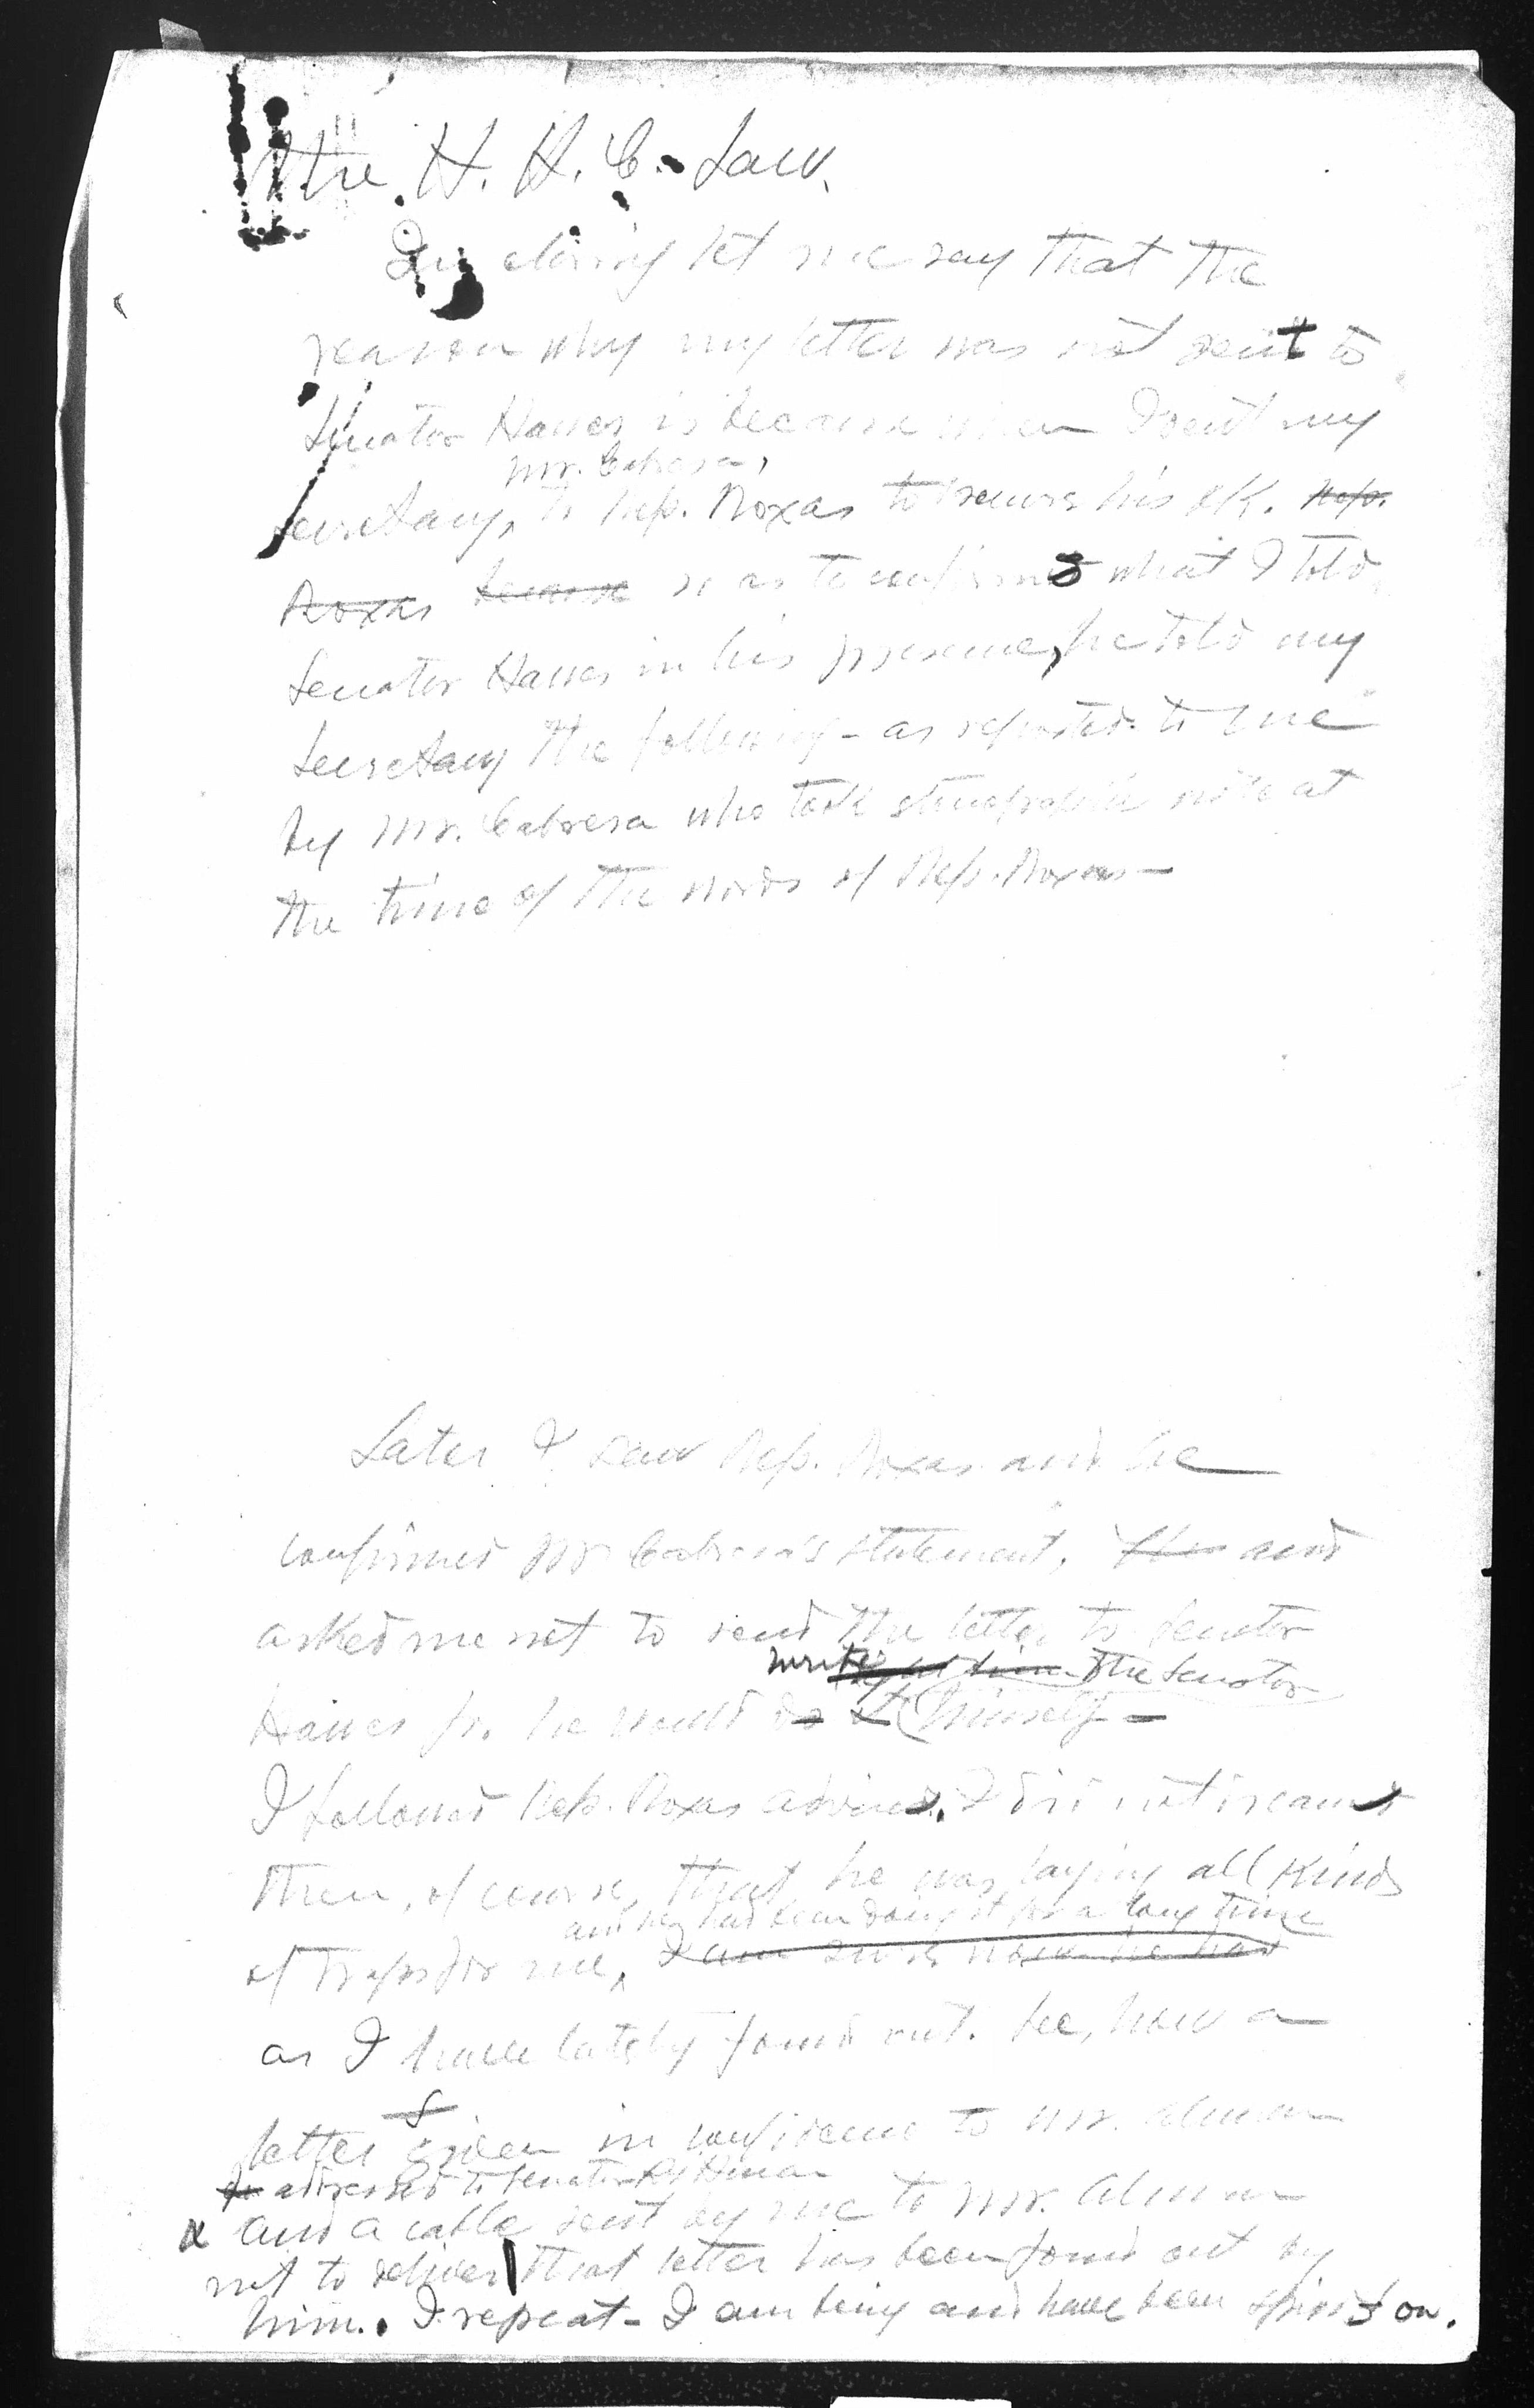 The H. H. C. Law.
In closing let me say that the
reason why my letter was not sent to
Senator Hawes is because when I sent my
Mr. Cabrera,
secretary, to Rep. Roxas to secure his OK. Rep.
Roxas because so as to confirm what I told
Senator Hawes in his presence, he told my
Secretary the following - as reported to me
by Mr. Cabrera who took stenographic note at
the time of the words of Rep. Roxas -
Later I saw Rep. Roxas and he
confirmed Mr Cabrera's statement, and
asked me not to send the letter to Senator
write the Senator
Hawes for he would do it himself -
I followed Rep. Roxas advice. I did not dream
then, of course, that he was laying all kinds
and he had been doing it for a long time
of traps for me, I am sure now he had
as I have lately found out. See, how a
letter given in confidence to Mr. Alunan
addressed to Senator
and a cable sent by me to Mr. Alunan
not to deliver that letter has been found out by
him. I repeat - I am being and have been spied on.